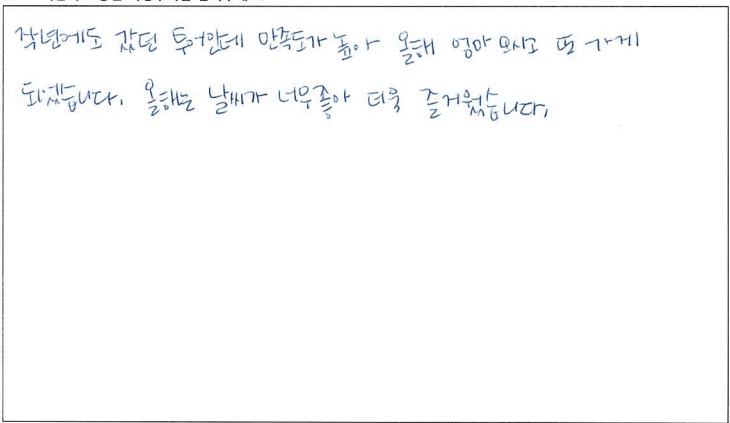 작년에도 갔던 투어인데 만족도가 높아 올해 엄마 모시고 또 가게
되었습니다. 올해는 날씨가 너무좋아 더욱 즐거웠습니다.